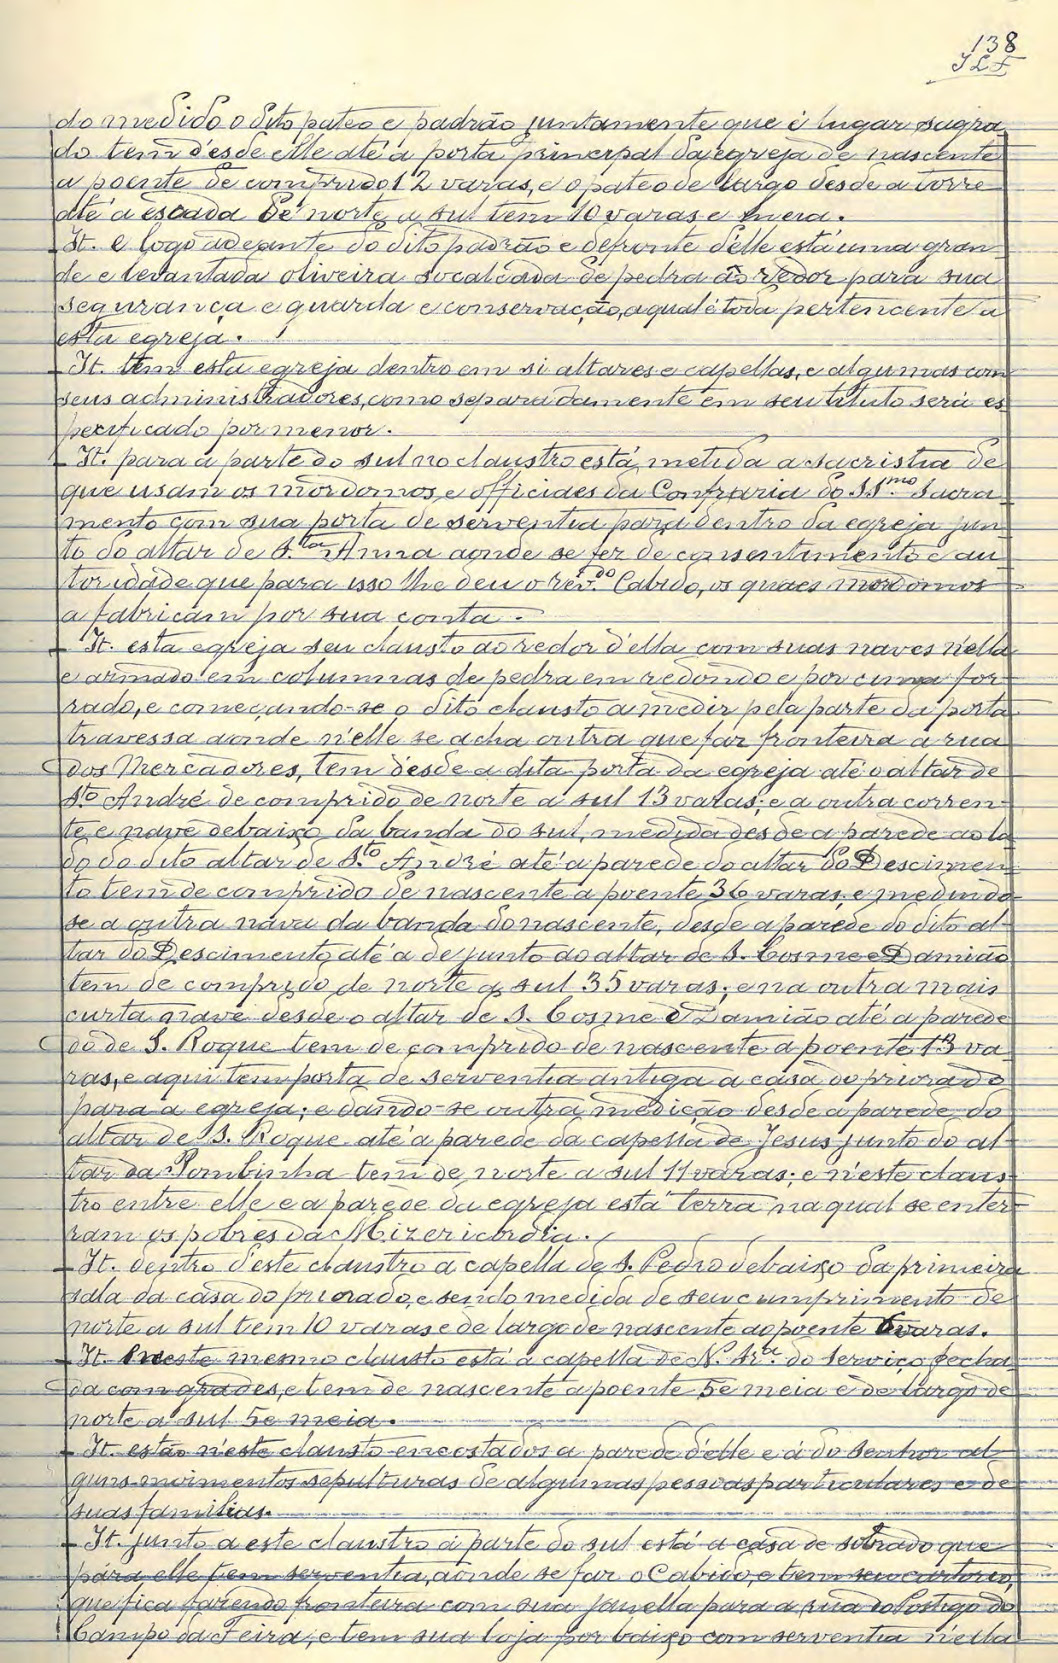 138
do medido o dito pateo e padrão juntamente que é lugar sagra
do tem desde elle até á porta principal da egreja de nascente
a poente de comprido 12 varas, e o pateo de largo desde a torre
até á escada de norte a sul tem 10 varas e meia.
It. e logo adeante do dito padrão e defronte d'elle está uma gran-
de e levantada oliveira socalcada de pedra ao redor para sua
segurança e guarda e conservação, a qual é toda pertencente a
esta egreja.
It. tem esta egreja dentro em si altares e capellas, e algumas com
seus administradores, como separadamente em seu titulo será es
pecificado por menor.
It. para a parte do sul no claustro está metida a sacristia de
que usam os mordomos e officiaes da Confraria do SSmo Sacra
mento com sua porta de serventia para dentro da egreja jun-
to do altar de S.ta Anna aonde se fez de consentimento e au
toridade que para isso lhe deu o rev.do Cabido, os quaes mordomos
a fabricam por sua conta.
It. esta egreja seu clausto ao redor d'ella com suas naves n'ella
e armado em columnas de pedra em redondo e por cima for-
rado, e começando-se o dito clausto a medir pela parte da porta
travessa aonde n'elle se acha outra que faz fronteira á rua
dos Mercadores, tem desde a dita porta da egreja até o altar de
S.to André de comprido de norte a sul 13 varas; e a outra corren-
te e nave debaixo da banda do sul, medida desde a parede ao la
do do dito altar de S.to André até á parede do altar do Descimen
to tem de comprido de nascente a poente 36 varas, e medindo-
se a outra nave da banda do nascente, desde a parede do dito al-
tar do Descimento até á de junto ao altar de S. Cosme e Damião
tem de comprido de norte a sul 35 varas; e na outra mais
curta nave desde o altar de S. Cosme e Damião até a parede
do de S. Roque tem de comprido de nascente a poente 13 va-
ras, e aqui tem porta de serventia antiga a casa do priorado
para a egreja; e dando-se outra medição desde a parede do
altar de S. Roque até á parede da capella de Jesus junto do al-
tar da Pombinha tem de norte a sul 11 varas; e n'este claus-
tro entre elle e a parede da egreja está terra na qual se enter-
ram os pobres da Mizericordia.
It. dentro d'este claustro a capella de S. Pedro debaixo da primeira
sala da casa do priorado, e sendo medida de seu cumprimento de
norte a sul tem 10 varas e de largo de nascente ao poente 6 varas.
It. neste mesmo clausto está a capella de N. Sr.a do Serviço fecha
da com grades, e tem de nascente a poente 5 e meia e de largo de
norte a sul 5 e meia.
It. estão n'este clausto encostados a parede d'elle e á do Senhor al-
guns moimentos sepulturas de algumas pessoas particulares e de
suas familias.
It. junto a este claustro á parte do sul está a casa de sobrado que
para elle tem serventia, aonde se faz o Cabido, e tem seu cartorio,
que fica fazendo fronteira com sua janella para a rua do Postigo do
Campo da Feira, e tem sua loja por baixo com serventia n'ella